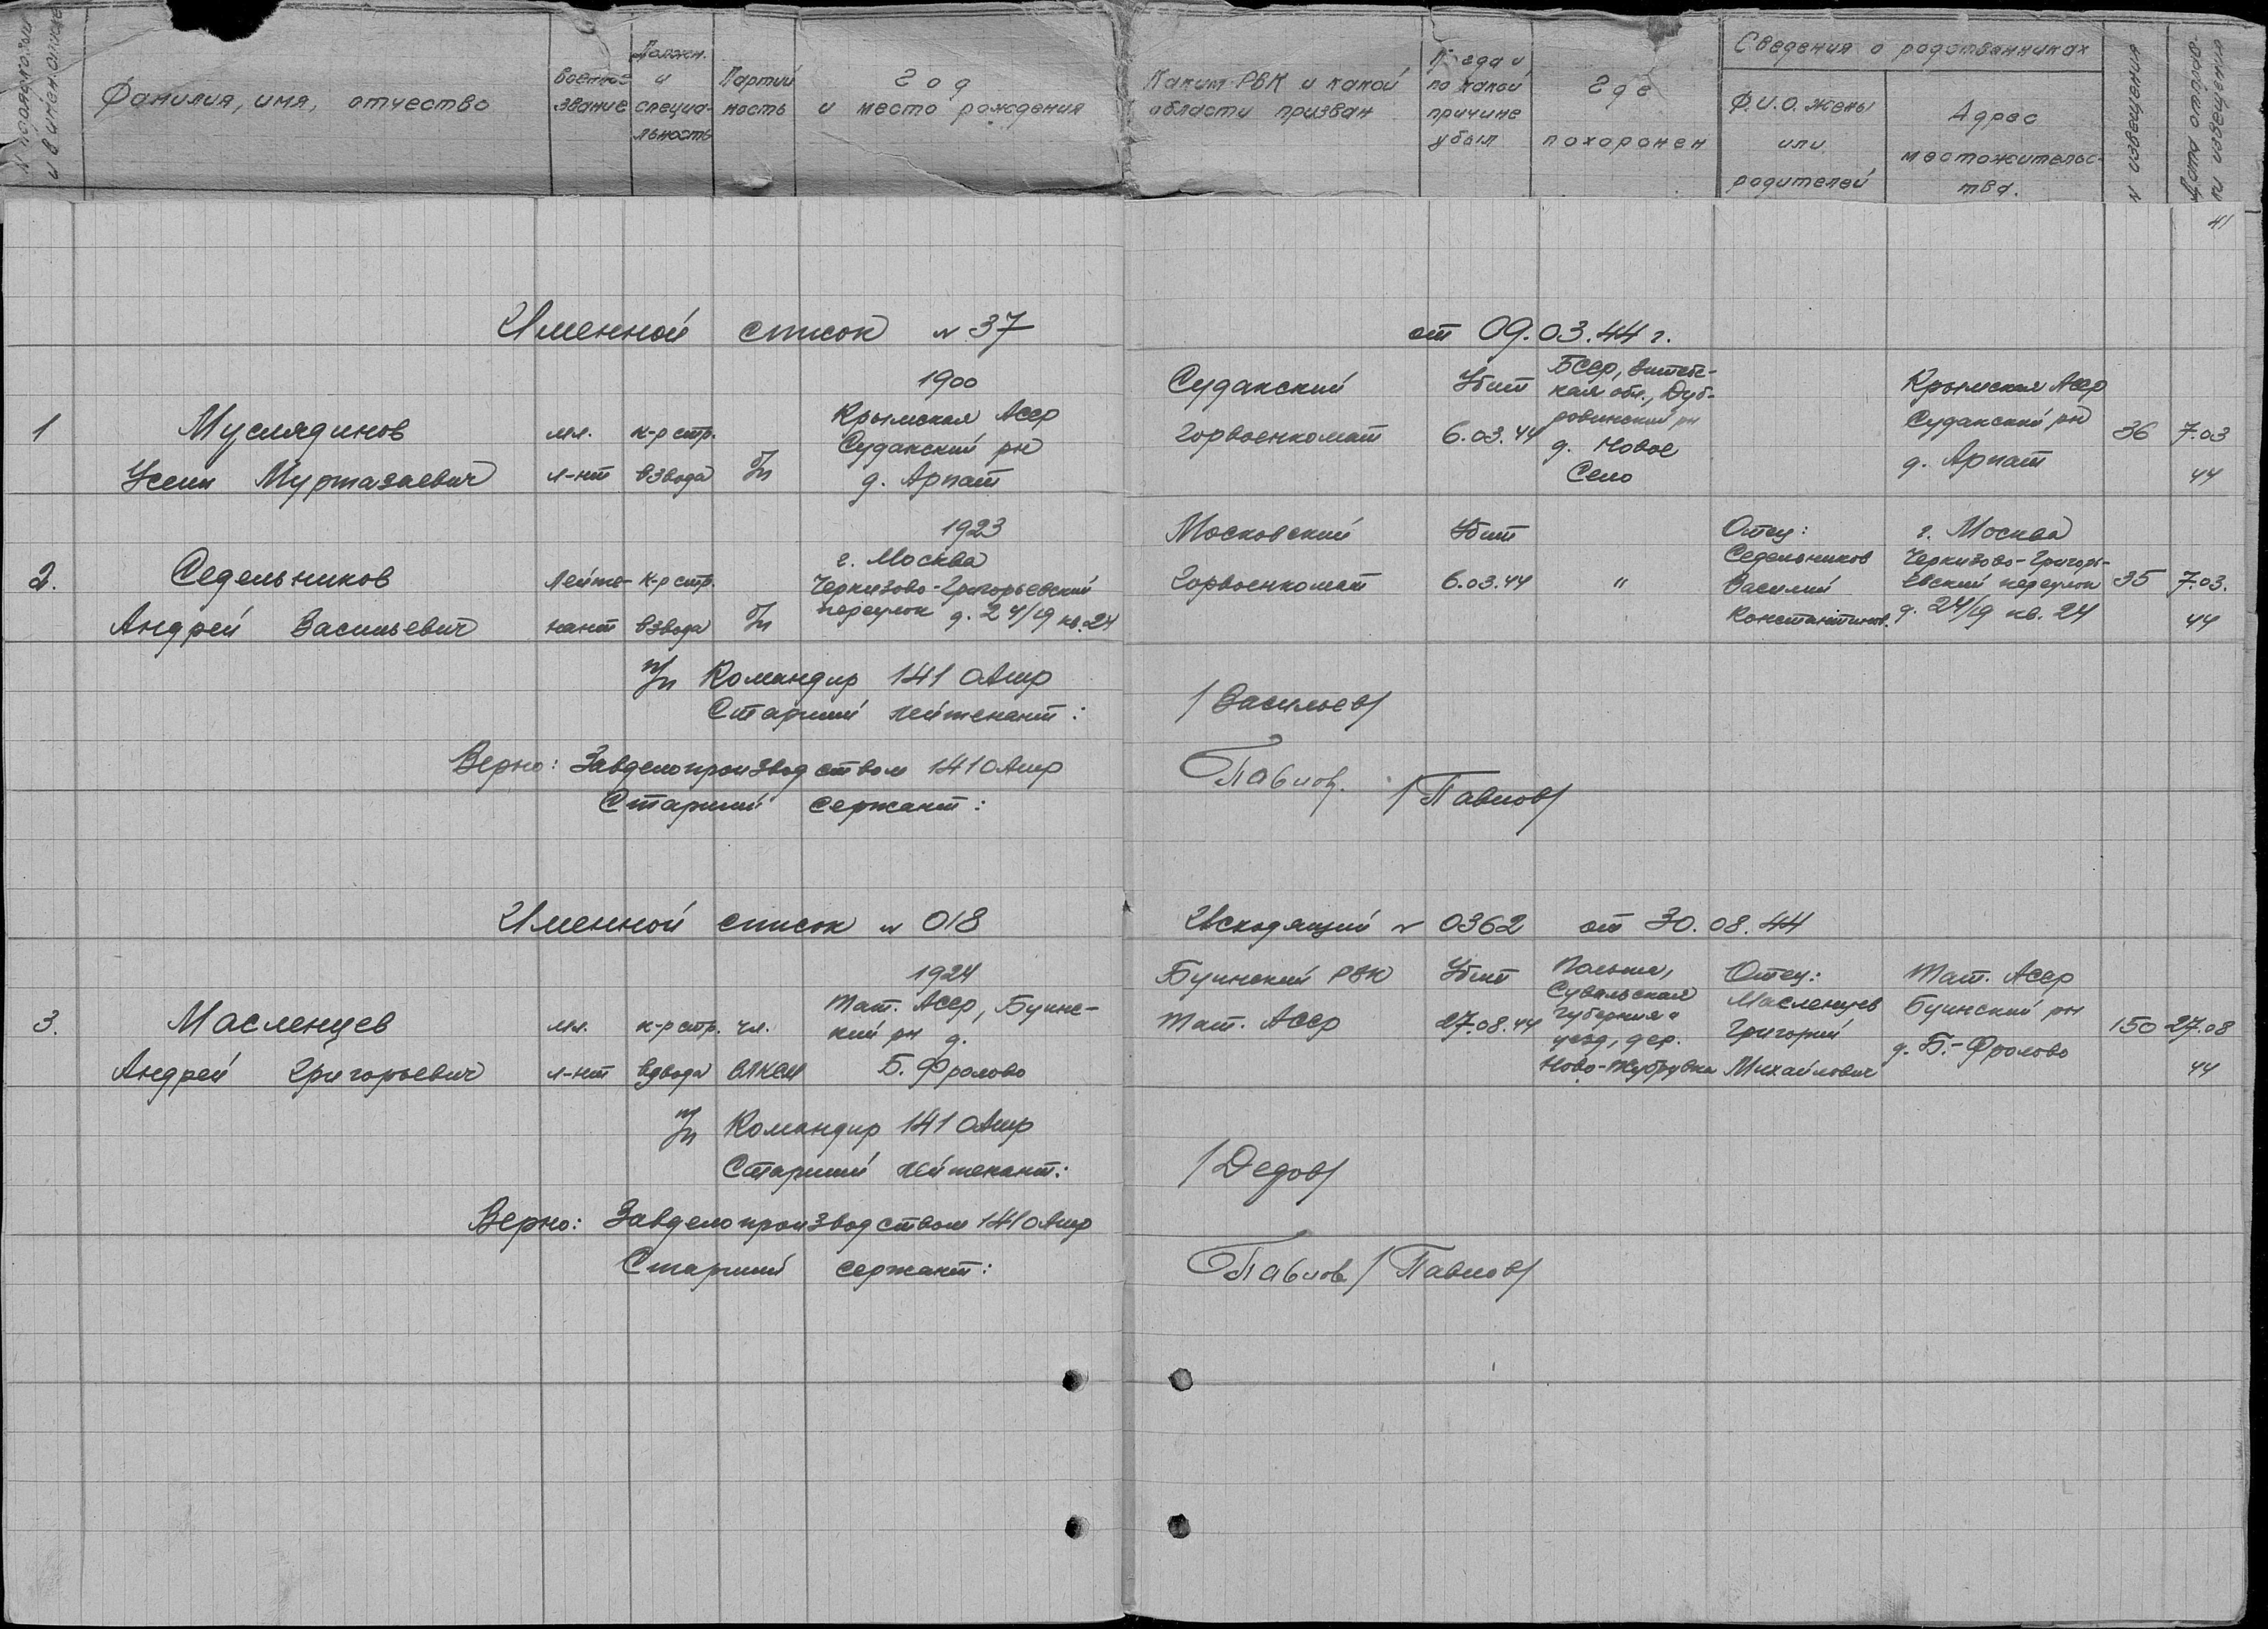 Фамилия, имя, отчество
Военное звание
Должн. и специальность
Партийность
Год и место рождения
Каким РВК и какой области призван
Когда и по какой причине убыл
Где похоронен
Сведения о родственниках
Ф.И.О. жены или родителей
Адрес местожительства.
N извещения
41
Именной список N 37 от 09.03.44 г.
1
Муслядинов
Усеин Муртазаевич
мл.
л-нт
к-р стр.
взвода
б/п
1900
Крымская Асср
Судакский рн
д. Арпат
Судакский
Горвоенкомат
Убит
6.03.44
БССР, Витебс-
кая обл., Дуб-
ровинский рн
д. Новое
Село
Крымская Асср
Судакский рн
д. Арпат
36
7.03
44
2.
Седельников
Андрей Васильевич
Лейте-
нант
к-р стр.
взвода
б/п
1923
г. Москва
Черкизово-Григорьевский
переулок д. 24/19 кв. 24
Московский
Горвоенкомат
Убит
6.03.44
"
Отец:
Седельников
Василий
Константинов.
г. Москва
Черкизово-Григорь-
евский переулок
д. 24/19 кв. 24
35
7.03.
44
п/п Командир 141 ОАшр
Старший лейтенант: /Васильев/
Верно: Завделопроизводством 141 ОАшр
Старший сержант: Павлов. /Павлов/
Именной список N 018 Исходящий N 0362 от 30.08.44
3.
Масленцев
Андрей Григорьевич
мл.
л-нт
к-р стр.
взвода
чл.
ВЛКСМ
1924
Тат. Асср, Буинс-
кий рн д.
Б. Фролово
Буинский РВК
Тат. Асср
Убит
27.08.44
Польша,
Сувальская
губерния и
уезд, дер.
Ново-
Отец:
Масленцев
Григорий
Михайлович
Тат. Асср
Буинский рн
д. Б.-Фролово
150
27.08
44
п/п Командир 141 ОАшр
Старший лейтенант: /Дедов/
Верно: Завделопроизводством 141 ОАшр
Старший сержант: Павлов /Павлов/